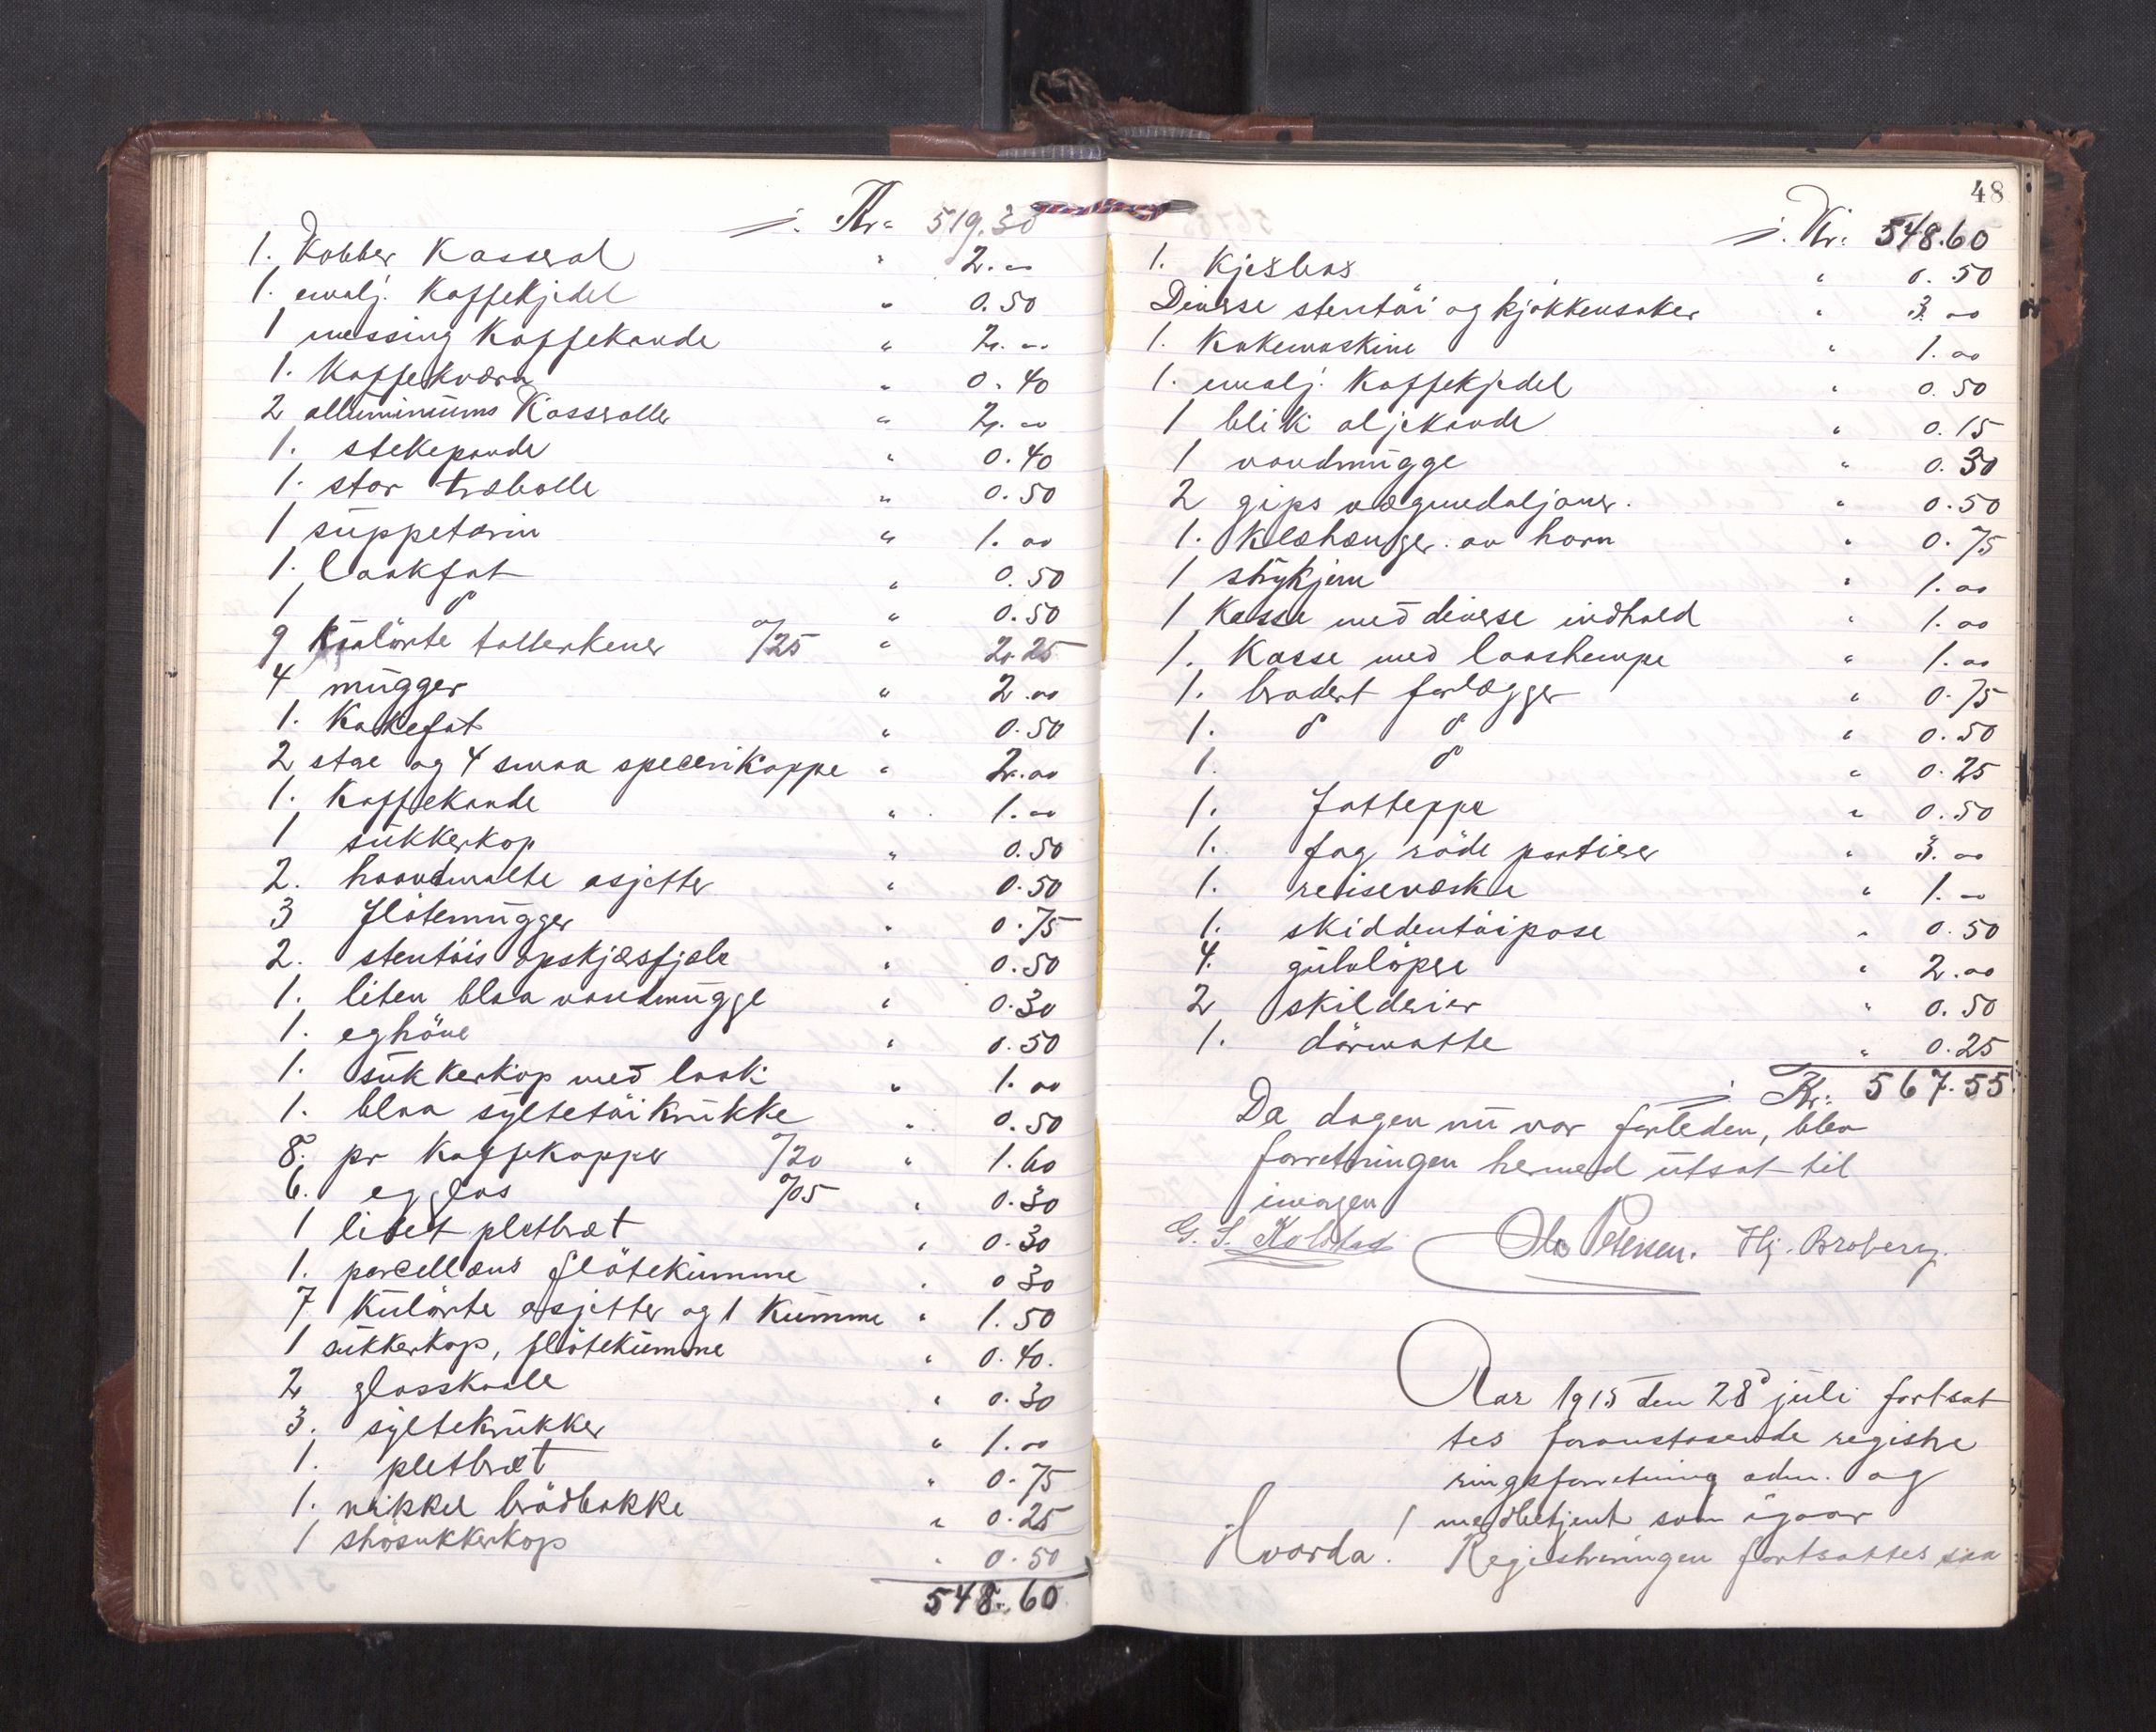 ÷ Kr. 519.30
1. Kobber Kasserol " 2.00
1. emalj. Kaffekjedel " 0.50
1 messing Kaffekande " 2.00
1. Kaffekværn " 0.40
2 alluminiums Kasseroller " 2.00
1. stekepande " 0.40
1. stor træbolle " 0.50
1 suppeterin " 1.00
1. laakfat " 0.50
1 do " 0.50
9 Kulørte tallerkener a/25 " 2.25
4 mugger " 2.00
1. Kakefat " 0.50
2 store og 4 smaa specerikopper " 2.00
1. Kaffekande " 1.00
1 sukkerkop " 0.50
2. haandmalte asjetter " 0.50
3 fløtemugger " 0.75
2. stentøis opskjærsfjæle " 0.50
1. liten blaa vandmugge " 0.30
1. eghøne " 0.50
1. sukkerkop med laak " 1.00
1. blaa syltetøikrukke " 0.50
8. pr kaffekopper a/20 " 1.60
6. egglas a/05 " 0.30
1 litet pletbræt " 0.30
1. porcellæns fløtekumme " 0 30
7 Kulørte asjetter og 1 Kumme " 1.50
1 sukkerkop, fløtekumme " 0.40.
2 glasskaale " 0.30
3. syltekrukker " 1.00
1. pletbræt " 0.75
1. nikkel brødbakke " 0.25
1 strøsukkerkop " 0.50
548.60
48
÷ Kr. 548.60
1. Kjeks " 0.50
Diverse stentøi og kjøkkensaker " 3.00
1. Kokemaskine " 1.00
1. emalj. Kaffekjedel " 0.50
1 blik oljekande " 0.15
1 vandmugge " 0.30
2 gips vægmedaljoner. " 0.50
1. Klæhænger av horn " 0.75
1 strykjern " 1.00
1 Kasse med diverse indhold " 1.00
1. Kasse med laashempe " 1.00
1. brodert forlægger " 0.75
1. do do " 0.50
1. do " 0.25
1. fatteppe " 0.50
1. fag røde portierer " 3.00
1. reisevæske " 1.00
1. skiddentøipose " 0.50
4. gulvløpere " 2.00
2 skilderier " 0.50
1. dørmatte " 0.25
÷ Kr. 567.55
Da dagen nu var forleden, blev
forretningen hermed utsat til
imorgen
G. S. Kolstad Ole Petersen. Hj. Broberg.
Aar 1915 den 28d juli fortsat
tes foranstaaende registre
ringsforretning adm. og
medbetjent som igaar
Hvorda! Registreringen fortsattes saa